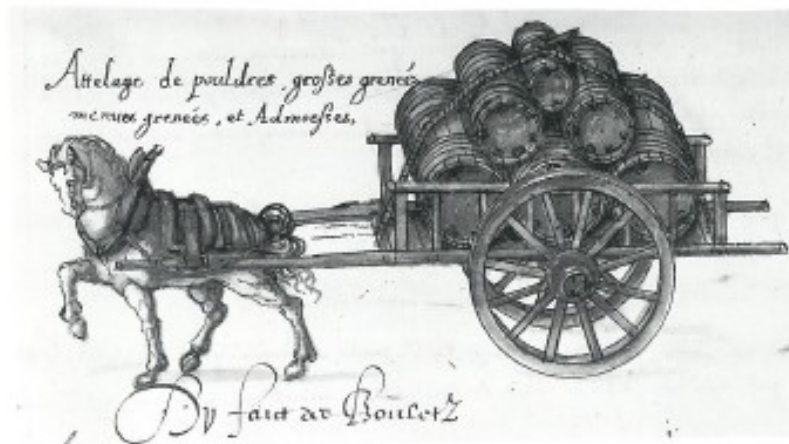 Attelage de pouldres, großes grenées
menues grenées, et Admorsses,
Du faict de Bouletz